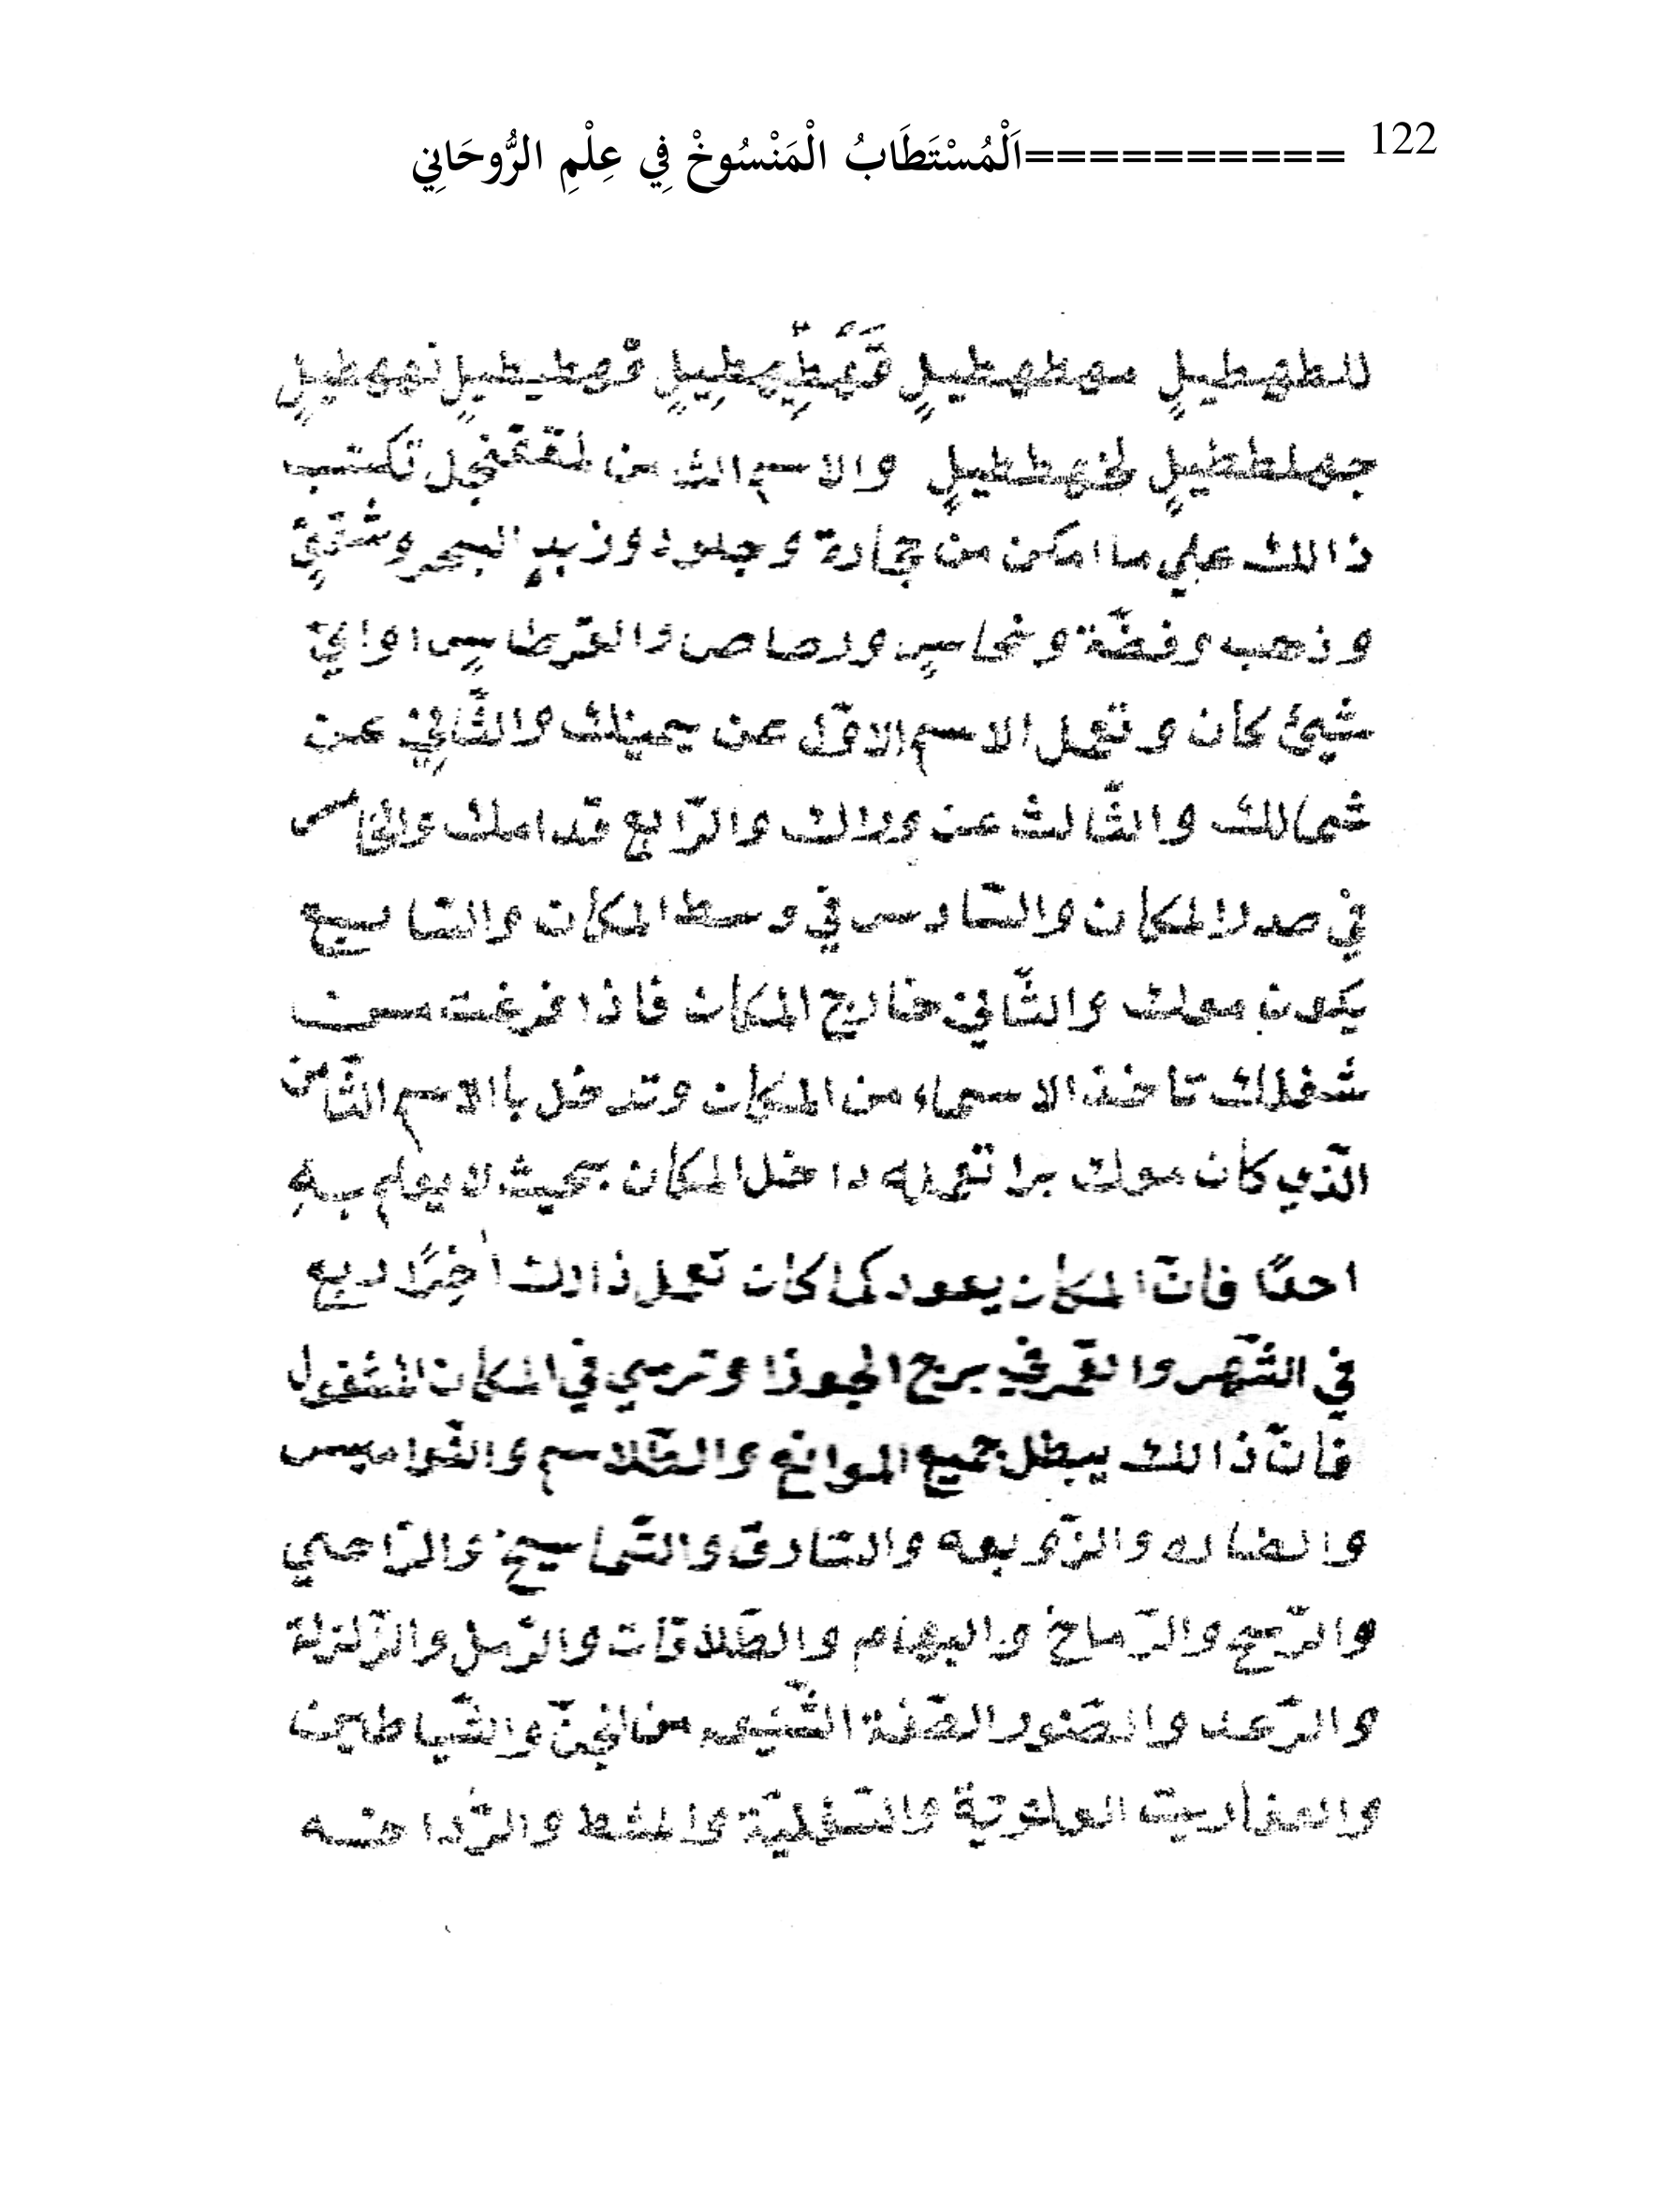 122 ==========اَلْمُسْتَطَابُ الْمَنْسُوخْ فِي عِلْمِ الرُّوحَانِي
للطهطيلٍ مهطهطيلٍ قهطيطيلٍ نهههطيلٍ
جهلططيلٍ لخهططيلٍ والاسم الثامن تكتب
ذالك علي ما امكن من حجارة وجلود وزبدٍ البحر وشقيٍ
وذهب وفضّة ونحاسٍ ورصاص والقرطاسٍ اوايّ
شيئ كان وتعمل الاسم الاوّل عن يمينك والثّانِيْ عن
شمالك والثّالث عن وراك والرّابع قدامك والخامس
فيْ صدر المكان والسّادس في وسط المكان والسّابع
يكون معك والثّاني خارج المكان فاذا فرغت من
شغلك تاخذ الاسماء من المكان وتدخل باالاسم الثّامن
الّذي كان معك برا تعمله داخل المكان بحيث لا يعلم بهِ
احدًا فانّ المكان يعود كما كان تعمل ذالك اٰخِرًا ربع
في الشّهر والقمر في برج الجوزا وترمي في المكان المشغول
فانّ ذالك يبطل جميع الموانع والطّلاسم والنّواميس
والزّوبعه والسّارق والتّماسيح والرّاحي
والرّيح والرّماح والبهام والطّلاقات والرّمل والزّلزلة
والرّعد والصّور من الجنّ والشّياطين
والعفاريت العلويّة والسّفليّة